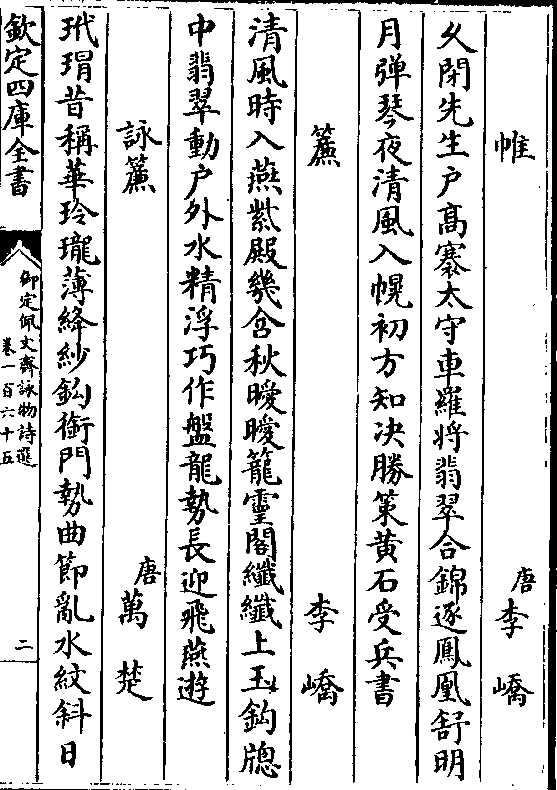 帷　唐李嶠
久閉先生户髙褰太守車羅將翡翠合錦逐鳳凰舒明
月彈琴夜清風入幌初方知决勝策黄石受兵書
簾　李嶠
清風時入燕紫殿幾含秋曖曖籠靈閣纖纖上玉鈎牎
中翡翠動户外水精浮巧作盤龍勢長迎飛燕遊
詠簾　唐萬楚
玳瑁昔稱華玲瓏薄絳紗鈎銜門勢曲節亂水紋斜日
欽定四庫全書
御定佩文齋詠物詩選
卷一百六十五
二